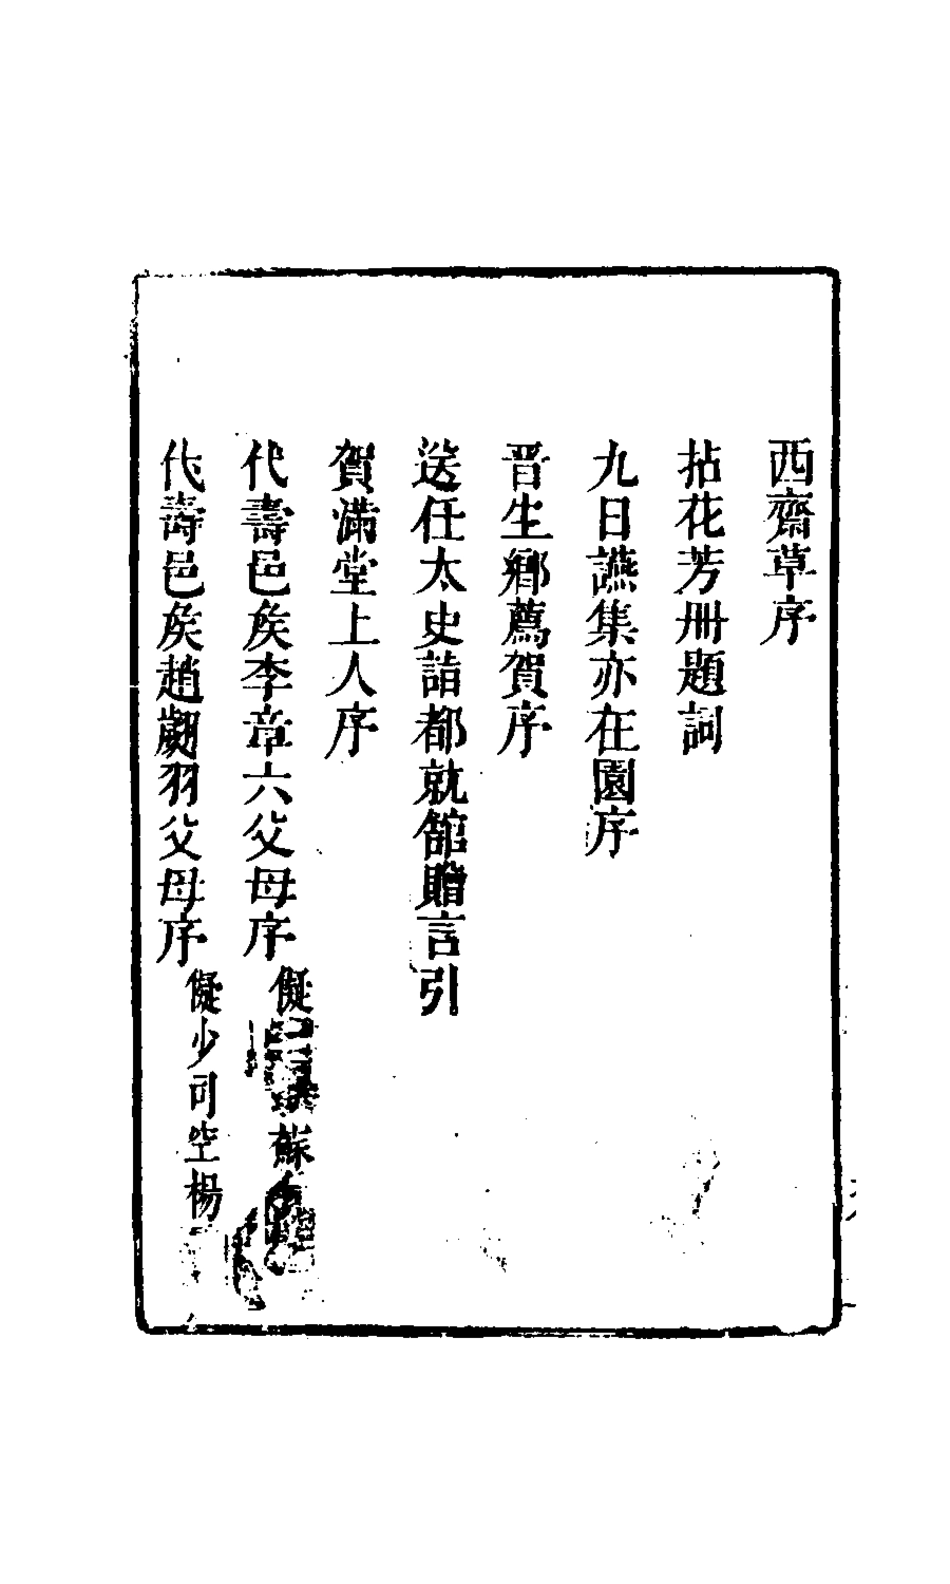 西齋草序
拈花芳冊題詞
九日讌集亦在園序
晋生鄉薦賀序
送任太史詣都就舘贈言引
賀滿堂上人序
代壽邑矦李章六父母序 儗 蘇
代壽邑矦趙翽羽父母序 儗少司空楊